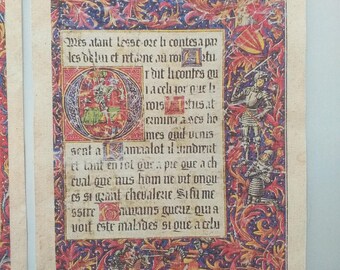 Mes atant lesse ore li contes a par
les delui et retorne au roi Artu
r dit li contes qu
a celi jor que li
rois Artus at
cemina a ses ho
mes qui venis
sent a Kamaalot il vindrent
et tant en rot que a pie que a ch
eval que nus hom ne vit onques
si grant chevalerie Si fu me
ssire Gauvains gueriz qui a
voit este malades si que a celu